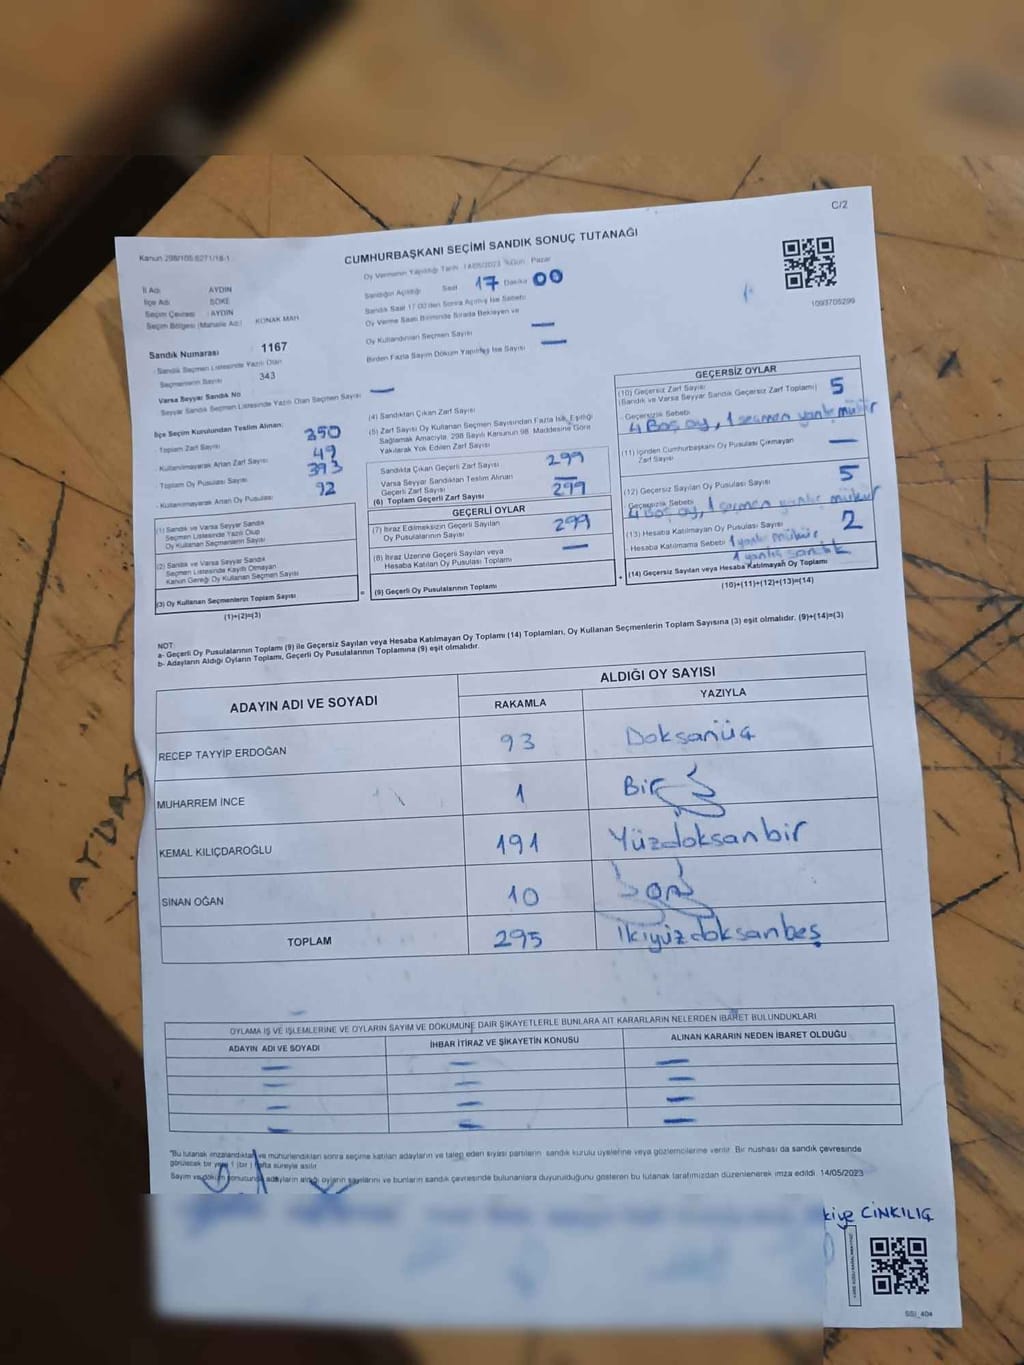 C/2
Kanun 298/105 6271/18-1
CUMHURBAŞKANI SEÇİMİ SANDIK SONUÇ TUTANAĞI
Oy Vermenin Yapıldığı Tarih : 14/05/2023 Gün : Pazar
İl Adı AYDIN
İlçe Adı SÖKE
Seçim Çevresi : AYDIN
Seçim Bölgesi (Mahalle Adı) KONAK MAH
Sandığın Açıldığı Saat 17 Dakika 00
Sandık Saat 17:00'den Sonra Açılmış İse Sebebi
Oy Verme Saati Bitiminde Sırada Bekleyen ve
Oy Kullandırılan Seçmen Sayısı —
Birden Fazla Sayım Döküm Yapılmış İse Sayısı —
1093705299
Sandık Numarası : 1167
Sandık Seçmen Listesinde Yazılı Olan
Seçmenlerin Sayısı 343
Varsa Seyyar Sandık No
Seyyar Sandık Seçmen Listesinde Yazılı Olan Seçmen Sayısı —
İlçe Seçim Kurulundan Teslim Alınan:
Toplam Zarf Sayısı 350
Kullanılmayarak Artan Zarf Sayısı 49
Toplam Oy Pusulası Sayısı 393
Kullanılmayarak Artan Oy Pusulası 92
(1) Sandık ve Varsa Seyyar Sandık
Seçmen Listesinde Yazılı Olup
Oy Kullanan Seçmenlerin Sayısı
(2) Sandık ve Varsa Seyyar Sandık
Seçmen Listesinde Kayıtlı Olmayan
Kanun Gereği Oy Kullanan Seçmen Sayısı
(3) Oy Kullanan Seçmenlerin Toplam Sayısı
(1)+(2)=(3)
(4) Sandıktan Çıkan Zarf Sayısı
(5) Zarf Sayısı Oy Kullanan Seçmen Sayısından Fazla İse, Eşitliği
Sağlamak Amacıyla, 298 Sayılı Kanunun 98. Maddesine Göre
Yakılarak Yok Edilen Zarf Sayısı
Sandıkta Çıkan Geçerli Zarf Sayısı 299
Varsa Seyyar Sandıktan Teslim Alınan
Geçerli Zarf Sayısı —
(6) Toplam Geçerli Zarf Sayısı 299
GEÇERLİ OYLAR
(7) İtiraz Edilmeksizin Geçerli Sayılan
Oy Pusulalarının Sayısı 299
(8) İtiraz Üzerine Geçerli Sayılan veya
Hesaba Katılan Oy Pusulası Toplamı —
(9) Geçerli Oy Pusulalarının Toplamı
GEÇERSİZ OYLAR
(10) Geçersiz Zarf Sayısı
(Sandık ve Varsa Seyyar Sandık Geçersiz Zarf Toplamı) 5
Geçersizlik Sebebi
4 Boş oy, 1 seçmen yanlış mühür
(11) İçinden Cumhurbaşkanı Oy Pusulası Çıkmayan
Zarf Sayısı —
(12) Geçersiz Sayılan Oy Pusulası Sayısı 5
Geçersizlik Sebebi
4 Boş oy, 1 seçmen yanlış mühür
(13) Hesaba Katılmayan Oy Pusulası Sayısı 2
Hesaba Katılmama Sebebi 1 yanlış mühür
1 yanlış sandık
(14) Geçersiz Sayılan veya Hesaba Katılmayan Oy Toplamı
(10)+(11)+(12)+(13)=(14)
NOT:
a- Geçerli Oy Pusulalarının Toplamı (9) ile Geçersiz Sayılan veya Hesaba Katılmayan Oy Toplamı (14) Toplamları, Oy Kullanan Seçmenlerin Toplam Sayısına (3) eşit olmalıdır. (9)+(14)=(3)
b- Adayların Aldığı Oyların Toplamı, Geçerli Oy Pusulalarının Toplamına (9) eşit olmalıdır.
ADAYIN ADI VE SOYADI
ALDIĞI OY SAYISI
RAKAMLA YAZIYLA
RECEP TAYYİP ERDOĞAN 93 Doksanüç
MUHARREM İNCE 1 Bir
KEMAL KILIÇDAROĞLU 191 Yüzdoksanbir
SİNAN OĞAN 10 on
TOPLAM 295 İkiyüzdoksanbeş
OYLAMA İŞ VE İŞLEMLERİNE VE OYLARIN SAYIM VE DÖKÜMÜNE DAİR ŞİKAYETLERLE BUNLARA AİT KARARLARIN NELERDEN İBARET BULUNDUKLARI
ADAYIN ADI VE SOYADI İHBAR İTİRAZ VE ŞİKAYETİN KONUSU ALINAN KARARIN NEDEN İBARET OLDUĞU
— — —
— — —
— — —
— — —
"Bu tutanak imzalandıktan ve mühürlendikten sonra seçime katılan adayların ve talep eden siyasi partilerin sandık kurulu üyelerine veya gözlemcilerine verilir. Bir nüshası da sandık çevresinde
görülecek bir yere 1 (bir) hafta süreyle asılır
Sayım ve döküm sonucunda adayların aldığı oyların sayılarını ve bunların sandık çevresinde bulunanlara duyurulduğunu gösteren bu tutanak tarafımızdan düzenlenerek imza edildi. 14/05/2023
kiye CİNKILIÇ
SSI_404
AYDA